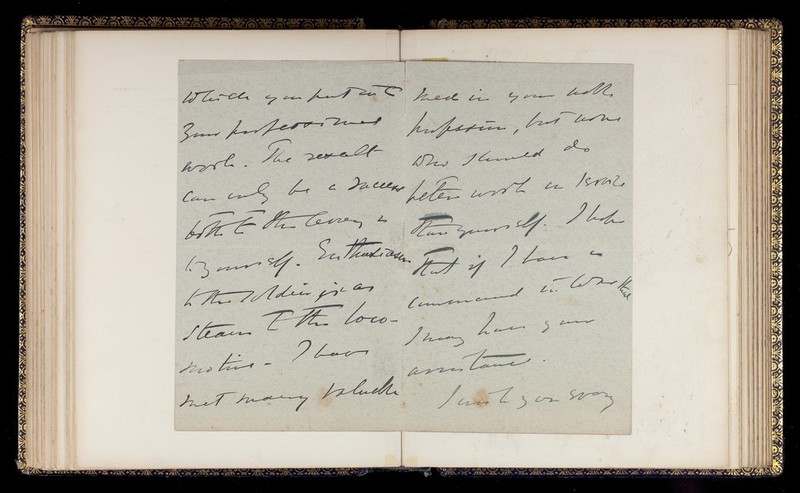 which you put into
your professional
work. The result
can only be a success
both to the
to yourself. Enthusiasm
to the soldier is as
steam to the loco-
motive. I have
met many valuable
men in your noble
profession, but none
who should do
better work in
than yourself. I hope
that if I have a
command in war that
I may have your
assistance.
I wish you every